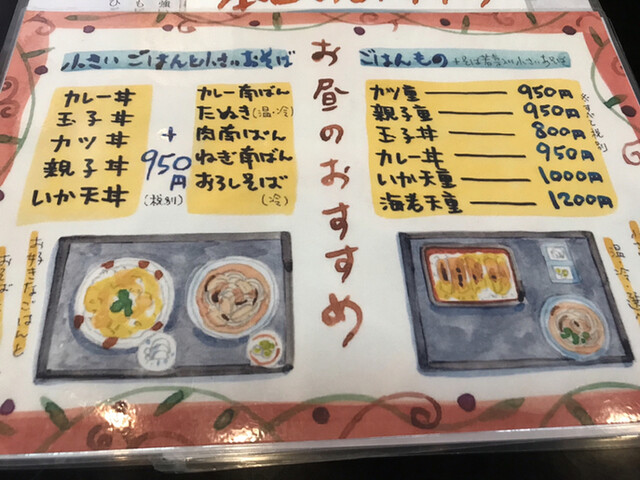 小さい ごはんと小さいおそば
カレー丼
玉子丼
カツ丼
親子丼
いか天丼
+
950円
(税別)
カレー南ばん
たぬき(温・冷)
肉南ばん
ねぎ南ばん
おろしそば
(冷)
お昼のおすすめ
ごはんもの
カツ重 950円
親子重 950円
玉子丼 800円
カレー丼 950円
いか天重 1000円
海老天重 1200円